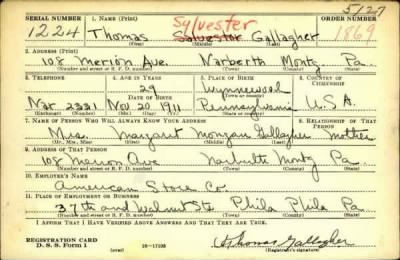 5127
SERIAL NUMBER 1. NAME (Print) Sylvester ORDER NUMBER
1224 Thomas Sylvestor Gallagher 1869
(First) (Middle) (Last)
2. ADDRESS (Print)
108 Merion Ave. Narberth Montg. Pa.
(Number and street or R. F. D. number) (Town) (County) (State)
3. TELEPHONE 4. AGE IN YEARS 5. PLACE OF BIRTH 6. COUNTRY OF CITIZENSHIP
29 Wynnewood
DATE OF BIRTH
Nar. 2331 Nov. 20 1911 Pennsylvania U.S.A.
(Exchange) (No.) (Mo.) (Day) (Yr.) (State or country)
7. NAME OF PERSON WHO WILL ALWAYS KNOW YOUR ADDRESS 8. RELATIONSHIP OF THAT PERSON
Mrs. Margaret Gallagher mother
(Mr., Mrs., Miss) (First) (Middle) (Last)
9. ADDRESS OF THAT PERSON
108 Merion Ave Narberth Montg Pa
(Number and street or R. F. D. number) (Town) (County) (State)
10. EMPLOYER'S NAME
American Store Co.
11. PLACE OF EMPLOYMENT OR BUSINESS
37th and Walnut Sts Phila Phila Pa
(Number and street or R. F. D. number) (Town) (County) (State)
I AFFIRM THAT I HAVE VERIFIED ABOVE ANSWERS AND THAT THEY ARE TRUE.
REGISTRATION CARD
D. S. S. Form 1 (over) 16—17105 Thomas Gallagher
(Registrant's signature)